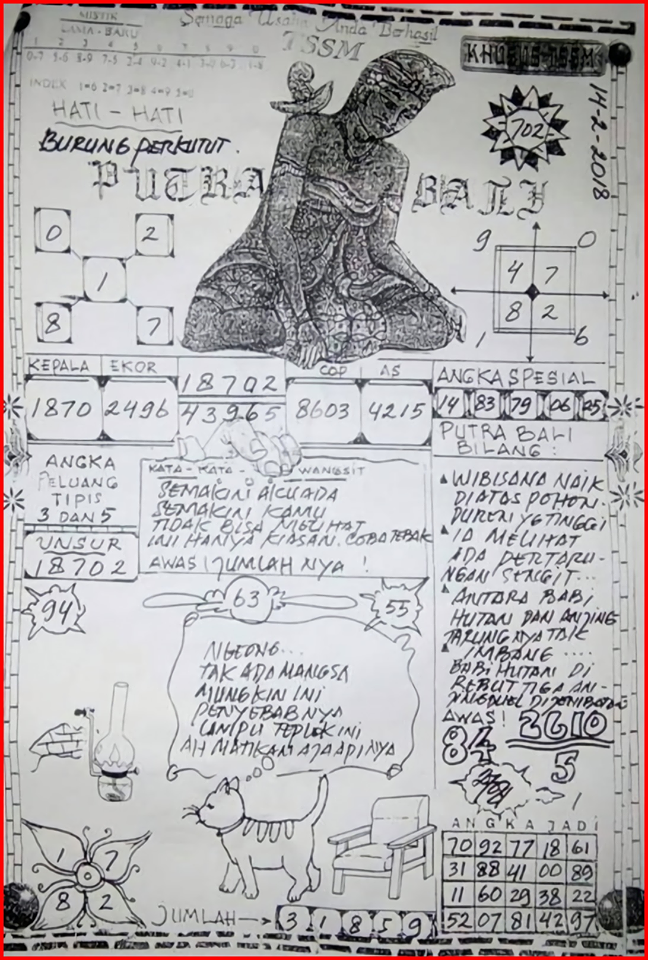 MISTIK
LAMA - BARU
1 2 3 4 5 6 7 8 9 0
INDEX 1=6 2=7 3=8 4=9 5=0
Semoga Usaha Anda Berhasil
TSSM
KHUSUS TSSM
HATI - HATI
BURUNG PERKUTUT.
702
14-2-2018
PUTRA BALI
0 2
1
8 7
9 0
4 7
8 2
1 6
KEPALA EKOR COP AS
18702
1870 2496 43965 8603 4215
ANGKA SPESIAL
14 83 79 06 25
PUTRA BALI
BILANG :
ANGKA
PELUANG
TIPIS
3 DAN 5
UNSUR
18702
KATA - KATA - WANGSIT
SEMAKIN AKU ADA
SEMAKIN KAMU
TIDAK BISA MELIHAT
INI HANYA KIASAN. COBA TEBAK
AWAS ! JUMLAH NYA !
WIBISANA NAIK
DIATAS POHON
DUREN YG TINGGI
IA MELIHAT
ADA PERTARU-
NGAN SENGIT...
ANTARA BABI
HUTAN DAN ANJING
TARUNG NYA TAK
IMBANG ....
BABI HUTAN DI
REBUT TIGA AN-
AWAS! 2610
84
5
94
63
55
NGEONG...
TAK ADA MANGSA
MUNGKIN INI
PENYEBABNYA
LAMPU TEPLEK INI
AH MATIKAN AJA APINYA
1 7
8 2
JUMLAH → 3 1 8 5 9
ANGKA JADI
70 92 77 18 61
31 88 41 00 89
11 60 29 38 22
52 07 81 42 97